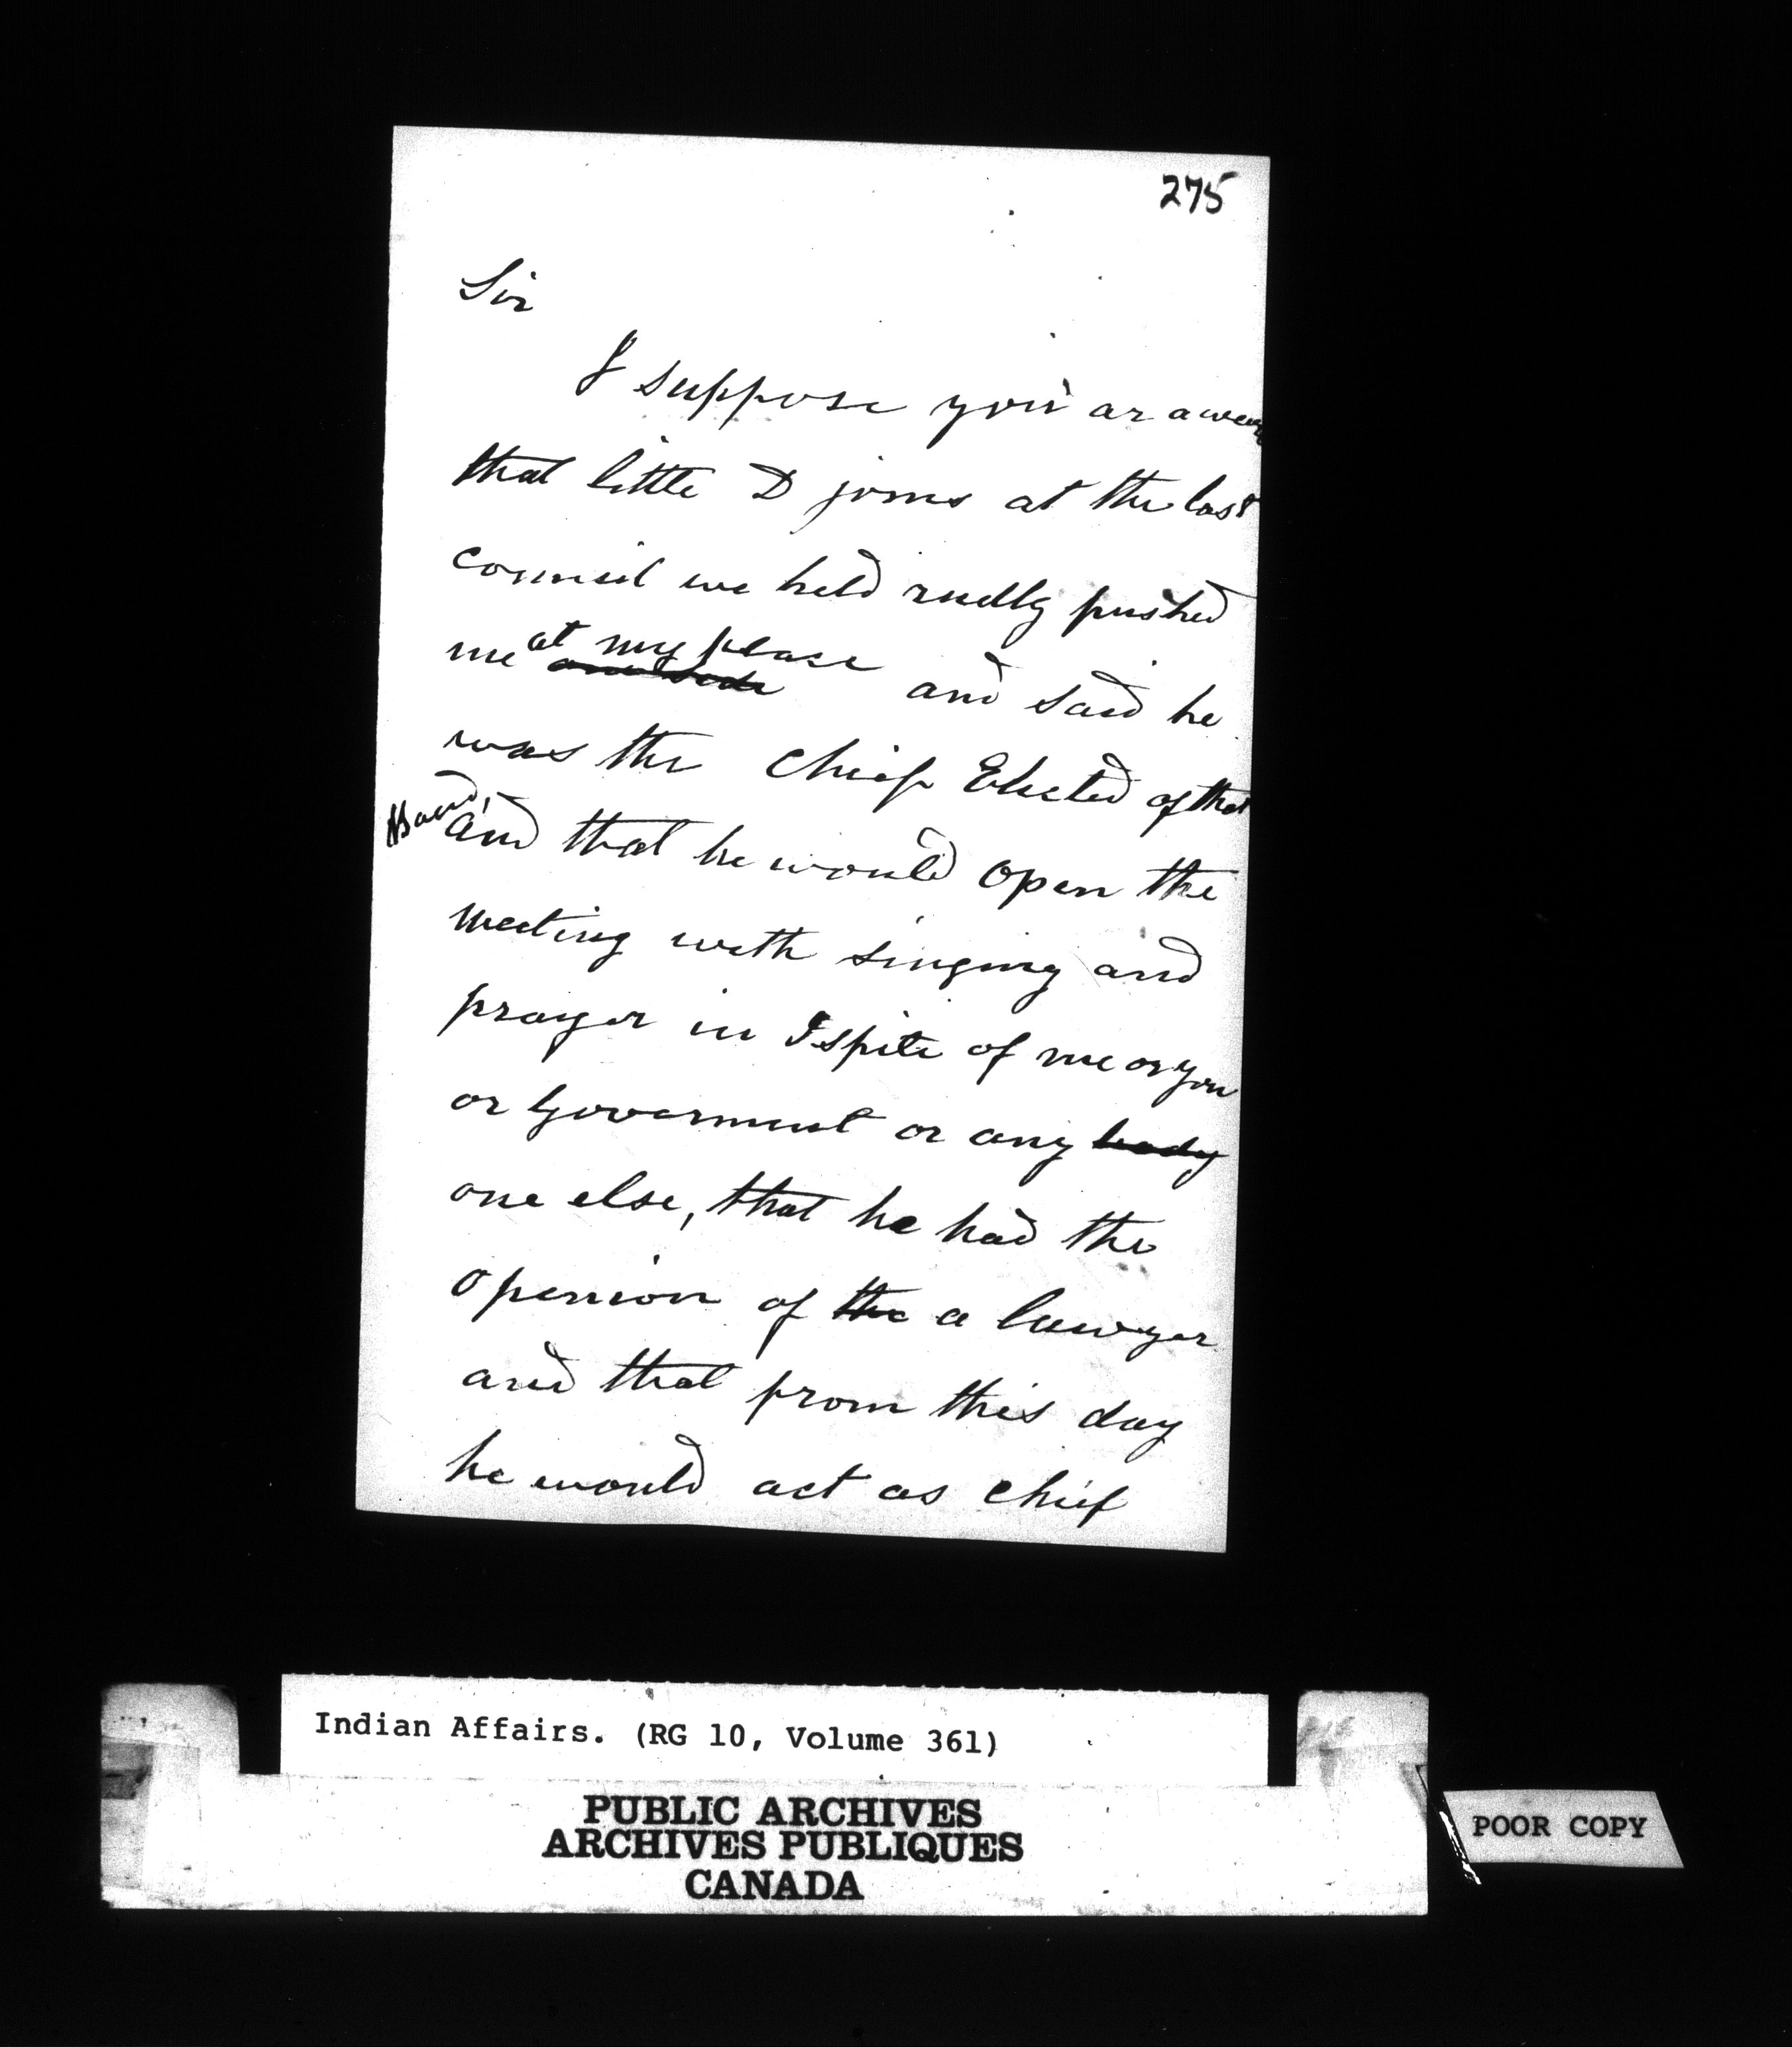 275
Sir
I suppose you ar aware
that little D joms at the last
council we held rudly pushed
me at my plase and said he
was the Chief Elected of that
Band, and that he would open the
meeting with singing and
prayer in spite of me or you
or Goverment or any body
one else, that he had the
openion of the a lawyer
and that from this day
he would act as chief
Indian Affairs. (RG 10, Volume 361)
PUBLIC ARCHIVES
ARCHIVES PUBLIQUES
CANADA
POOR COPY